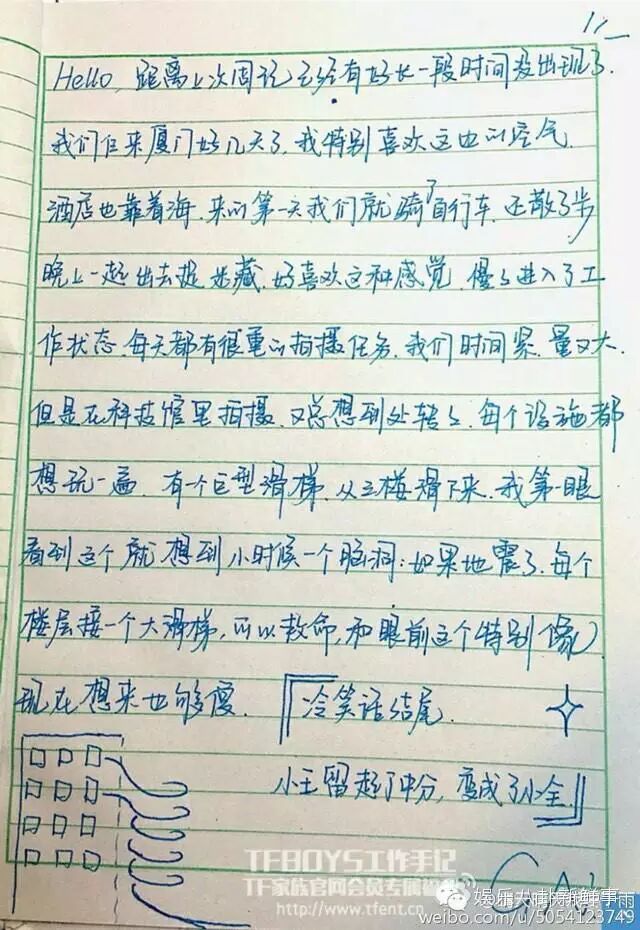 Hello, 距离上次周记已经有好长一段时间没出现了.
我们已来厦门好几天了, 我特别喜欢这边的空气.
酒店也靠着海. 来的第一天我们就骑了自行车. 还散了步
晚上一起出去捉迷藏. 好喜欢这种感觉. 慢々进入了工
作状态. 每天都有很重的拍摄任务. 我们时间紧. 量又大.
但是在科技馆里拍摄. 又总想到处转々. 每个设施都
想玩一遍. 有一个巨型滑梯. 从三楼滑下来. 我第一眼
看到这个就想到小时候一个脑洞: 如果地震了. 每个
楼层接一个大滑梯, 可以救命, 和眼前这个特别像
现在想来也够傻.
『冷笑话结尾.
小王留起了中分, 变成了小全.』
TFBOYS工作手记
TF家族官网会员专属
http://www.tfent.cn
weibo.com/u/5054123749